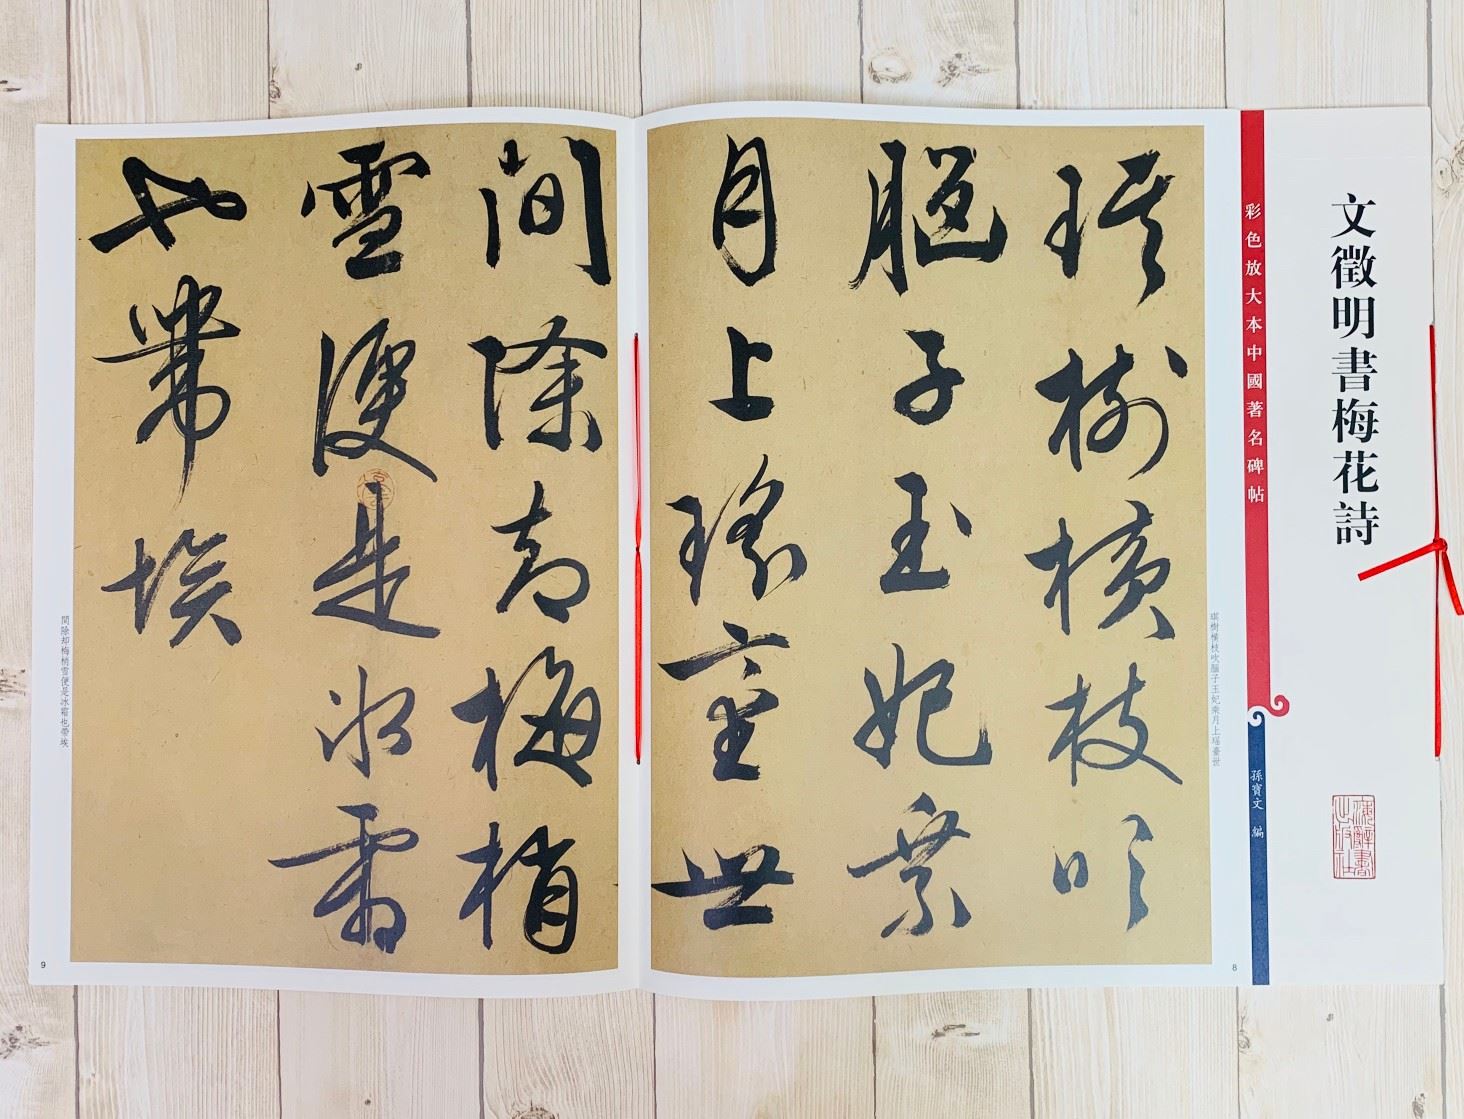 文徵明書梅花詩
彩色放大本中國著名碑帖
孫寶文 編
琪樹橫枝吹腦子玉妃乘月上瑶臺世
琪樹橫枝吹
腦子玉妃乘
月上瑶臺世
8
間除却梅梢
雪便是冰霜
也帶埃
間除却梅梢雪便是冰霜也帶埃
9